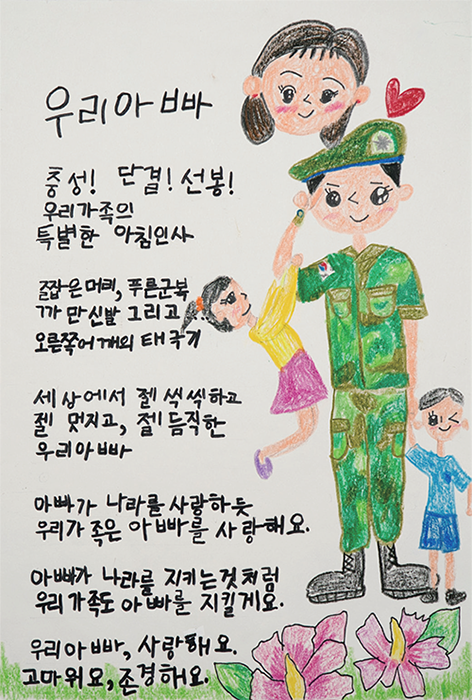 우리아빠
충성! 단결! 선봉!
우리가족의
특별한 아침인사
짧은머리, 푸른군복
까만신발 그리고...
오른쪽어깨의 태극기
세상에서 젤 씩씩하고
젤 멋지고, 젤 듬직한
우리아빠
아빠가 나라를 사랑하듯
우리가족은 아빠를 사랑해요.
아빠가 나라를 지키는것처럼
우리가족도 아빠를 지킬게요.
우리아빠, 사랑해요.
고마워요, 존경해요.